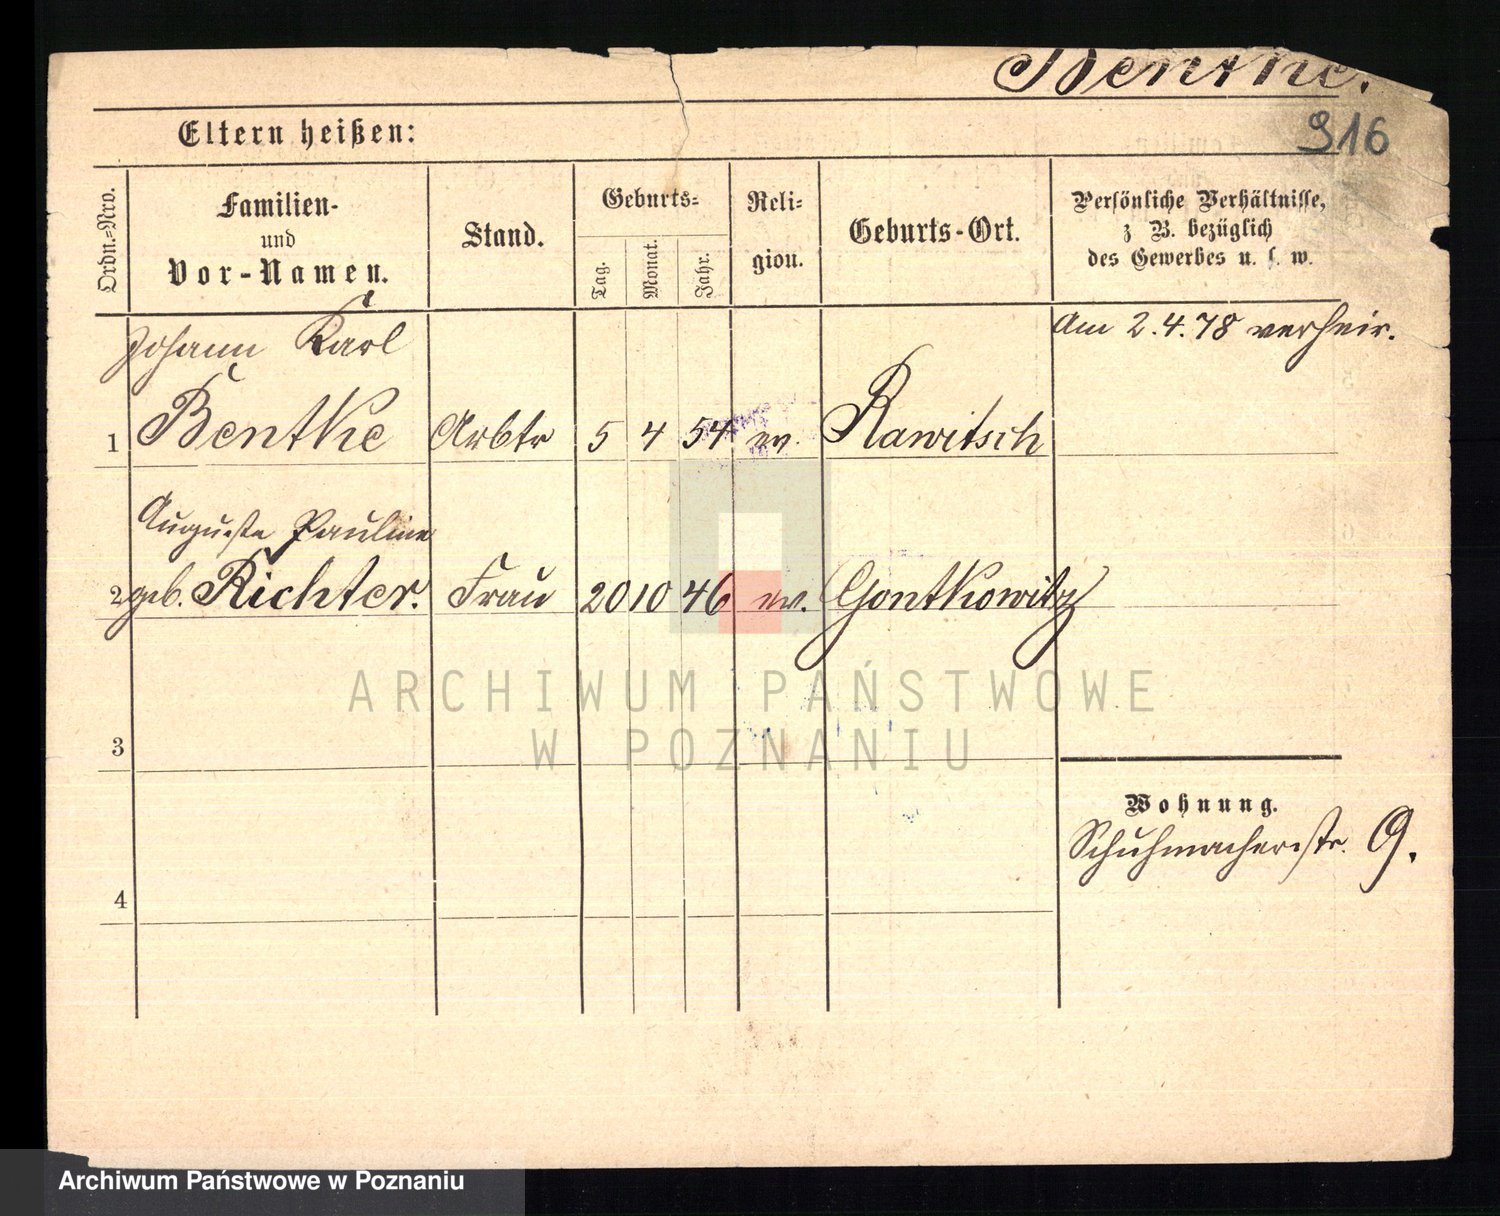 Bentke.
916
Eltern heißen:
Ordn.=Nro.
Familien-
und
Vor-Namen.
Stand.
Geburts=
Tag.
Monat.
Jahr.
Reli-
gion.
Geburts-Ort.
Persönliche Verhältnisse,
z B. bezüglich
des Gewerbes u. s. w.
Am 2.4.78 verheir.
Johann Karl
1 Bentke Arbtr 5 4 54 ev. Rawitsch
Auguste Pauline
2 geb. Richter. Frau 20 10 46 ev. Gontkowitz
ARCHIWUM PAŃSTWOWE
W POZNANIU
3
Wohnung.
Schuhmacherstr. 9.
4
Archiwum Państwowe w Poznaniu